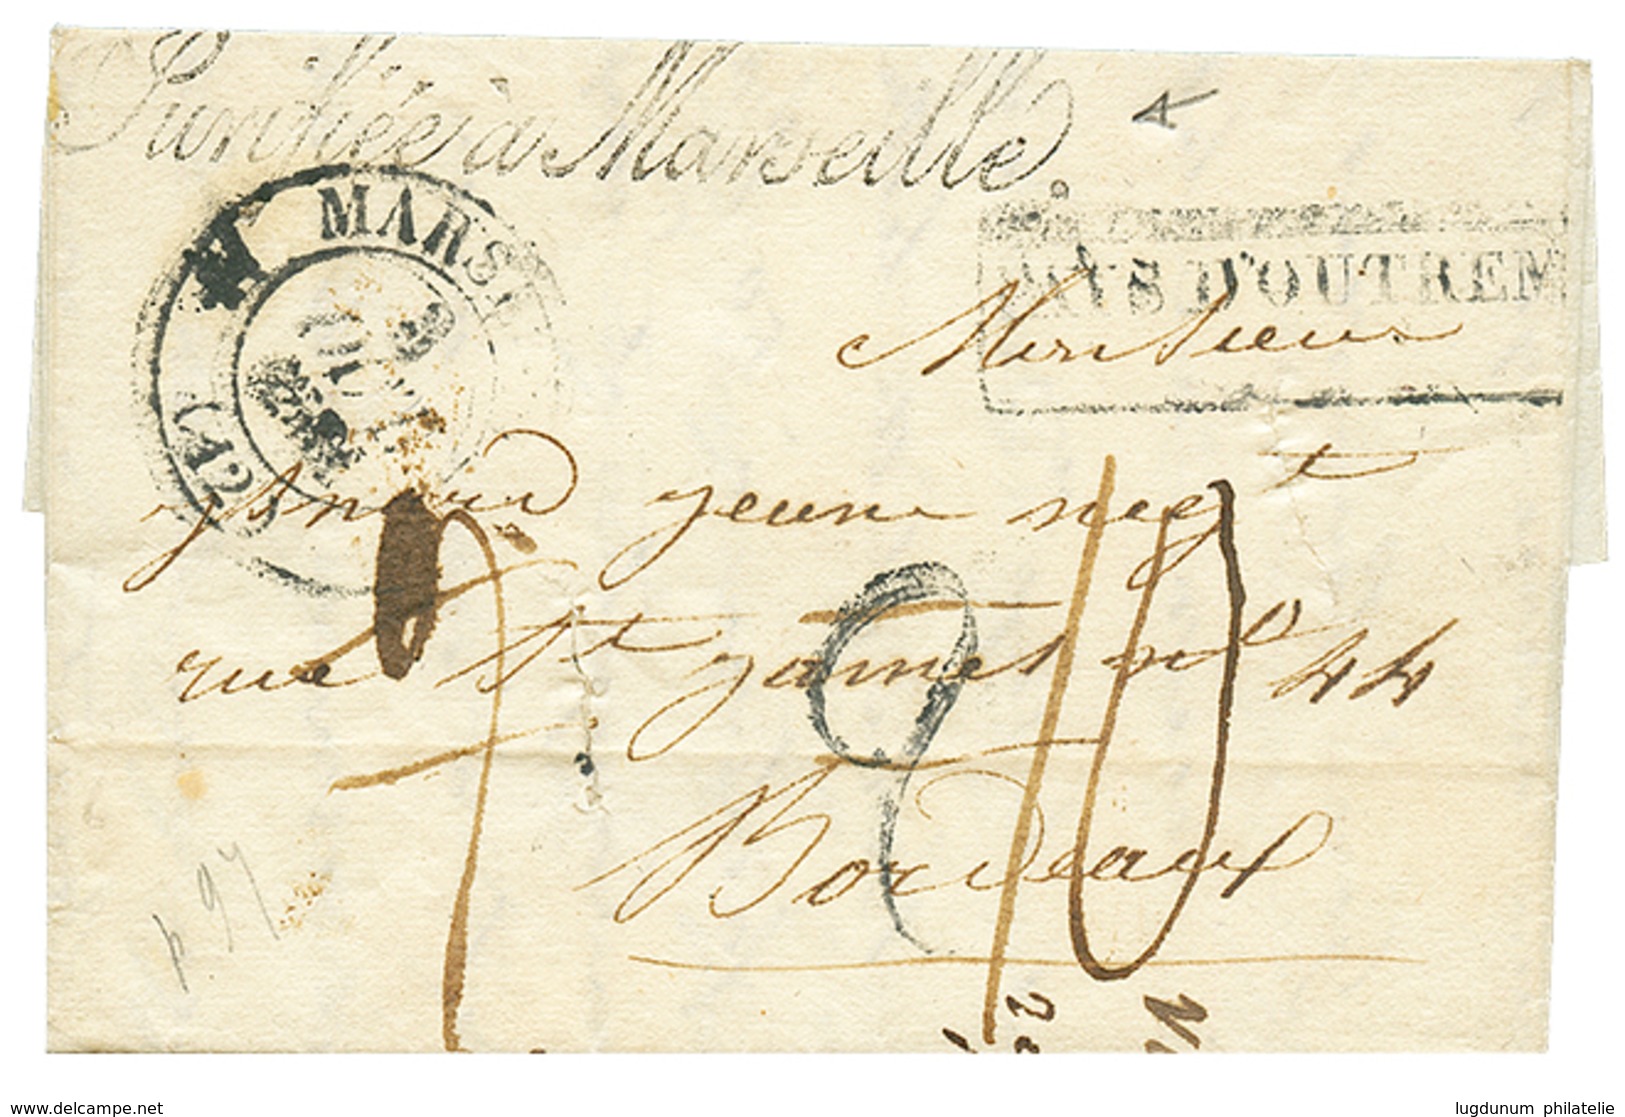 Purifiée à Marseille.
MARSE
PAYS D'OUTREM
(12)
Monsieur
jeune negt
rue St James n° 44
9
10
Bordeaux
p. 97
delcampe.net
lugdunum philatelie